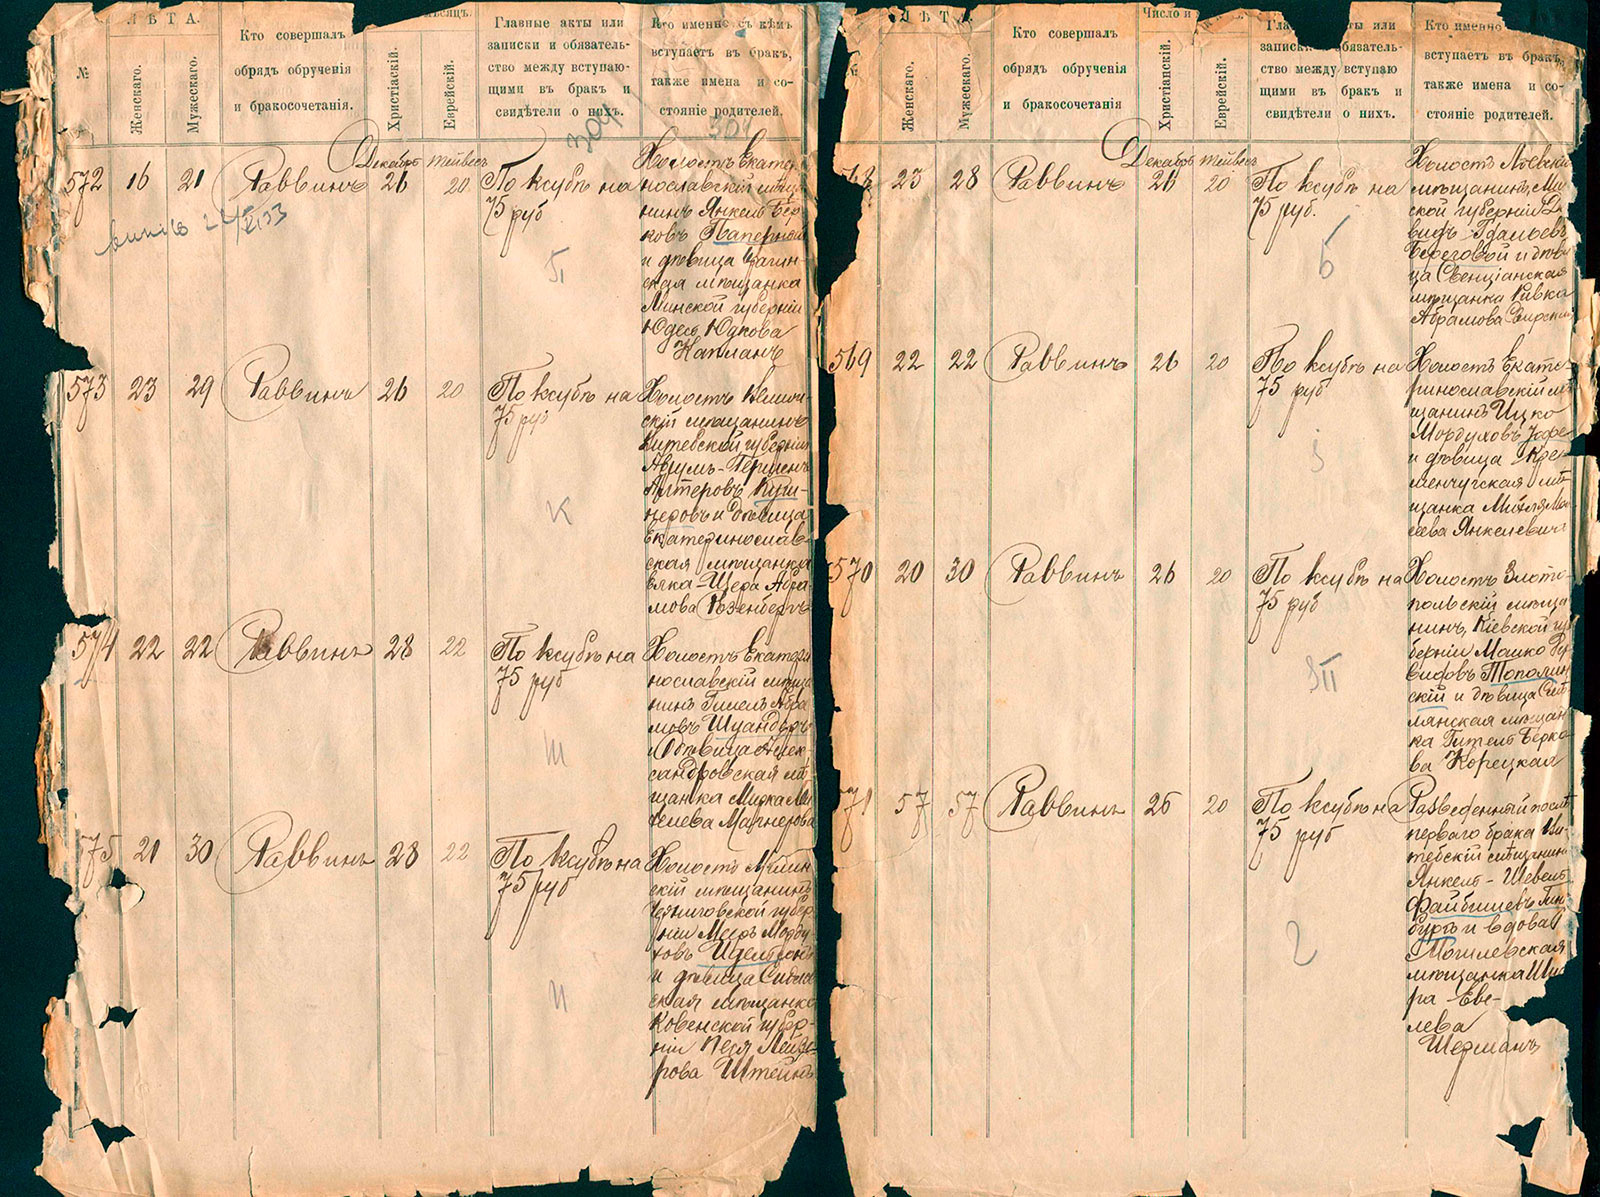 ЛѢТА.
№
Женскаго.
Мужескаго.
Кто совершалъ
обрядъ обрученія
и бракосочетанія.
мѣсяцъ.
Христіаскій.
Еврейскій.
Главные акты или
записки и обязатель-
ство между вступаю-
щими въ бракъ и
свидѣтели о нихъ.
Кто именно съ кѣмъ
вступаетъ въ бракъ,
также имена и со-
стояніе родителей.
Декабрь Тейвесъ
572 16 21 Раввинъ 26 20
По ксубѣ на
75 руб
П
Холостъ Екатери
нославскій мѣща
нинъ Янкель Бер
ковъ Паперный
и дѣвица
ская мѣщанка
Минской губерніи
Юдесъ Юдкова
Капланъ
573 23 29 Раввинъ 26 20
По ксубѣ на
75 руб
К
Холостъ
скій мѣщанинъ
Витебской губерніи
Абрумъ-Гершенъ
Алтеровъ Куш-
неровъ и дѣвица
Екатеринослав-
ская мѣщанка
Абра
мова Розенбергъ
574 22 22 Раввинъ 28 22
По ксубѣ на
75 руб
Ш
Холостъ Екатери
нославскій мѣща
нинъ Гилель Абра
мовъ
и дѣвица Алек-
сандровская мѣ
щанка
575 21 30 Раввинъ 28 22
По ксубѣ на
75 руб
И
Холостъ
скій мѣщанинъ
Черниговской губер
ніи Меръ Морду
ховъ Идельсонъ
и дѣвица
ская мѣщанка
Ковенской губер-
ніи Песя Лейзе
рова Штейнъ
ЛѢТА.
Женскаго.
Мужескаго.
Кто совершалъ
обрядъ обрученія
и бракосочетанія
Число и
Христіанскій.
Еврейскій.
Главные акты или
записки обязатель-
ство между вступаю
щими въ бракъ и
свидѣтели о нихъ.
Кто именно
вступаетъ въ бракъ,
также имена и со-
стояніе родителей.
Декабрь Тейвесъ
568 23 28 Раввинъ 26 20
По ксубѣ на
75 руб.
Б
Холостъ Лоевскій
мѣщанинъ, Мин
ской губерніи Да
видъ Гдальевъ
Береговой и дѣви
ца Свенціанская
мѣщанка Ривка
Абрамова Свирский
569 22 22 Раввинъ 26 20
По ксубѣ на
75 руб
Холостъ Екате-
ринославскій мѣ
щанинъ Ицко
Мордуховъ Іофе
и дѣвица Кре-
менчугская мѣ
щанка
Янкелевичъ
570 20 30 Раввинъ 26 20
По ксубѣ на
75 руб
Холостъ Злото-
польскій мѣща
нинъ, Кіевской гу
берніи Мошко Ду
видовъ Тополин
скій и дѣвица Смѣ
лянская мѣщан
ка Гитель Берко
ва Корецкая
571 57 57 Раввинъ 26 20
По ксубѣ на
75 руб
Разведенный послѣ
перваго брака Ви-
тебскій мѣщанинъ
Янкель-Шевель
Файбишевъ Гин
бургъ и вдова
Могилевская
мѣщанка
ра Еве-
лева
Шерманъ